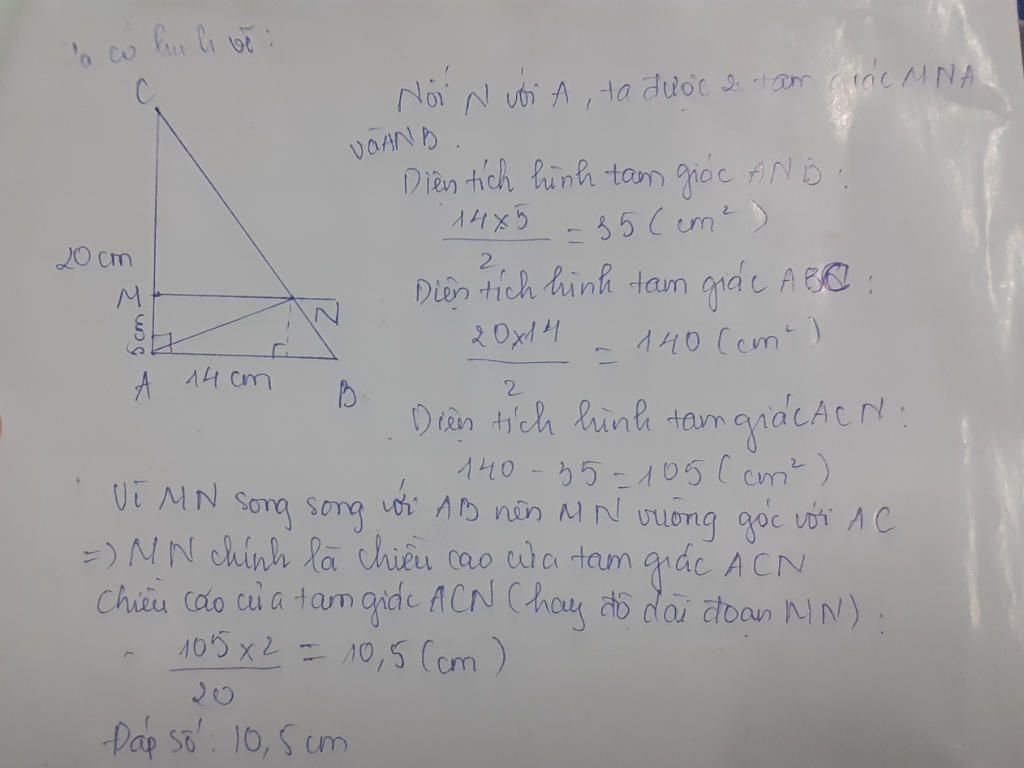 Ta có hình vẽ:
C
20cm
M
N
5cm
A
14cm
B
Nối N với A, ta được 2 tam giác MNA
và ANB.
Diện tích hình tam giác ANB:
14x5
2
= 35 (cm²)
Diện tích hình tam giác ABC:
20x14
2
= 140 (cm²)
Diện tích hình tam giác ACN:
140 - 35 = 105 (cm²)
Vì MN song song với AB nên MN vuông góc với AC
=> MN chính là chiều cao của tam giác ACN
Chiều cao của tam giác ACN (hay độ dài đoạn MN):
105 x 2
20
= 10,5 (cm)
Đáp số: 10,5cm